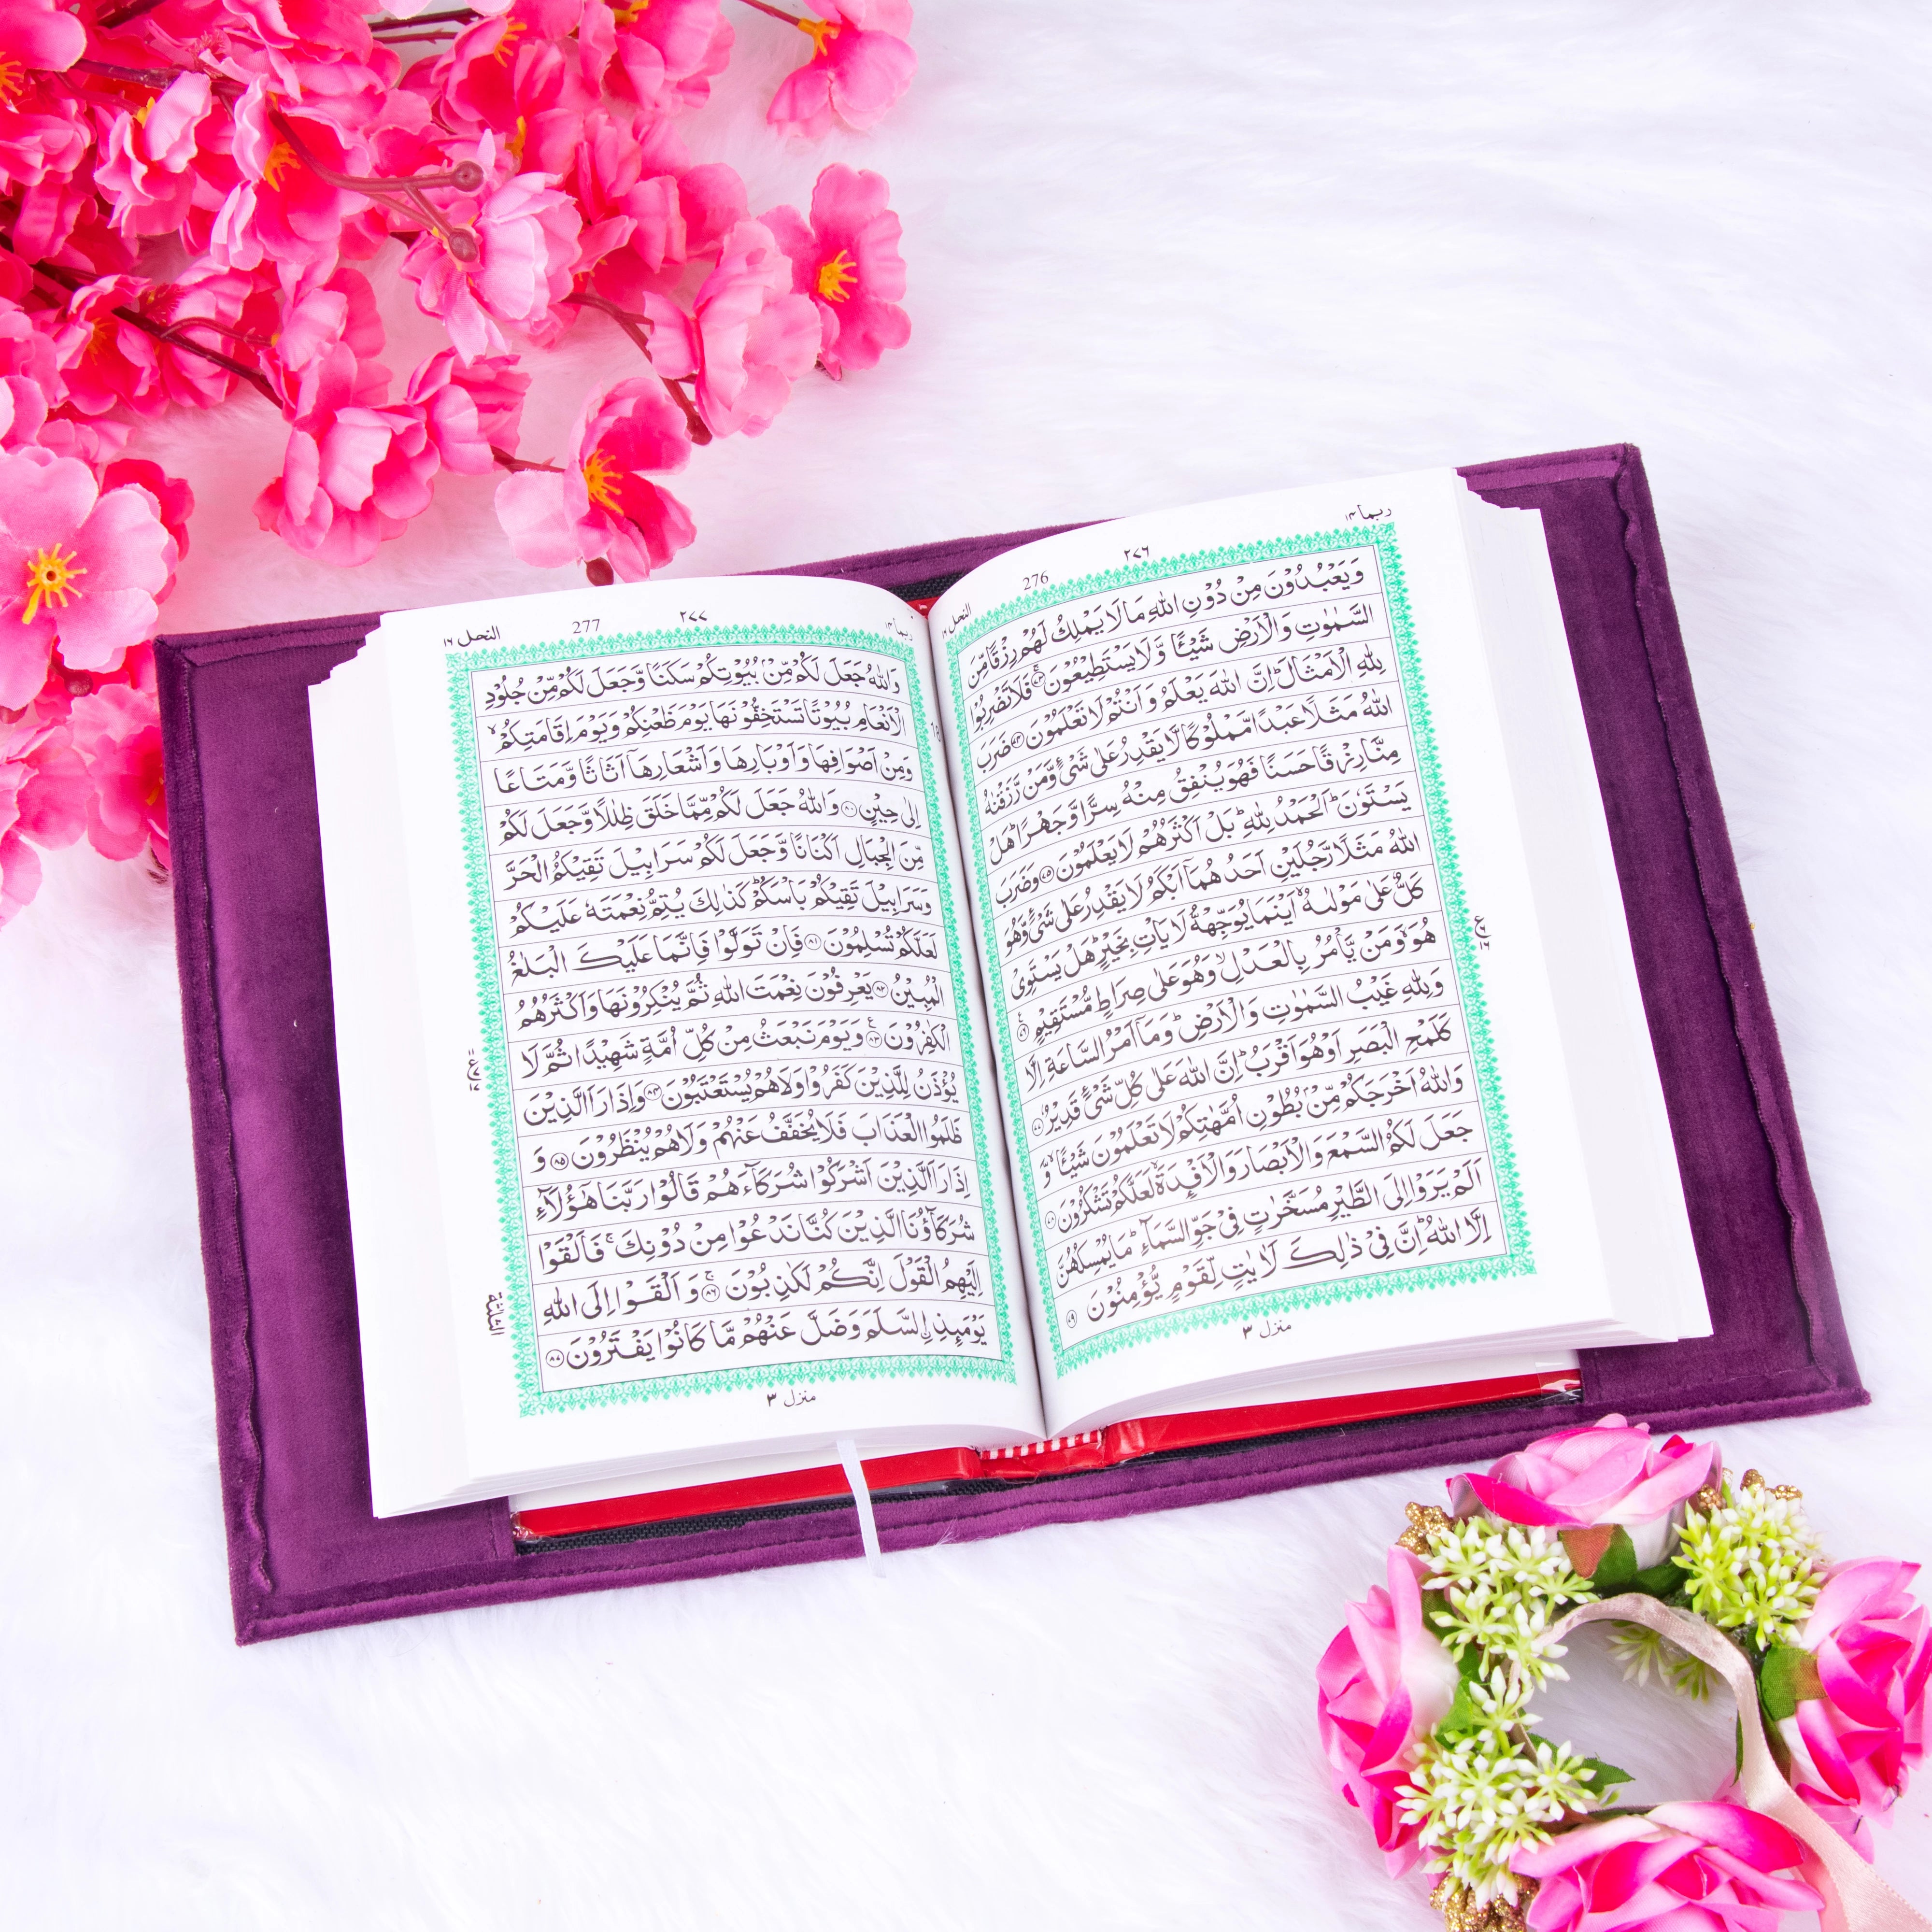 ربما ١٤
٢٧٦
276
النحل ١٦
وَيَعْبُدُوْنَ مِنْ دُوْنِ اللّٰهِ مَا لَا يَمْلِكُ لَهُمْ رِزْقًا مِّنَ
السَّمٰوٰتِ وَالْاَرْضِ شَيْـًٔا وَّلَا يَسْتَطِيْعُوْنَ ۚ﴿۷۳﴾ فَلَا تَضْرِبُوْا
لِلّٰهِ الْاَمْثَالَ ؕ اِنَّ اللّٰهَ يَعْلَمُ وَاَنْتُمْ لَا تَعْلَمُوْنَ ﴿۷۴﴾ ضَرَبَ
اللّٰهُ مَثَلًا عَبْدًا مَّمْلُوْكًا لَّا يَقْدِرُ عَلٰى شَيْءٍ وَّمَنْ رَّزَقْنٰهُ
مِنَّا رِزْقًا حَسَنًا فَهُوَ يُنْفِقُ مِنْهُ سِرًّا وَّجَهْرًا ؕ هَلْ
يَسْتَوٗنَ ؕ اَلْحَمْدُ لِلّٰهِ ؕ بَلْ اَكْثَرُهُمْ لَا يَعْلَمُوْنَ ﴿۷۵﴾ وَضَرَبَ
اللّٰهُ مَثَلًا رَّجُلَيْنِ اَحَدُهُمَآ اَبْكَمُ لَا يَقْدِرُ عَلٰى شَيْءٍ وَّهُوَ
كَلٌّ عَلٰى مَوْلٰىهُ ۙ اَيْنَمَا يُوَجِّهْهُّ لَا يَاْتِ بِخَيْرٍ ؕ هَلْ يَسْتَوِيْ
هُوَ ۙ وَمَنْ يَّاْمُرُ بِالْعَدْلِ ۙ وَهُوَ عَلٰى صِرَاطٍ مُّسْتَقِيْمٍ ﴿۷۶﴾
وَلِلّٰهِ غَيْبُ السَّمٰوٰتِ وَالْاَرْضِ ؕ وَمَآ اَمْرُ السَّاعَةِ اِلَّا
كَلَمْحِ الْبَصَرِ اَوْ هُوَ اَقْرَبُ ؕ اِنَّ اللّٰهَ عَلٰى كُلِّ شَيْءٍ قَدِيْرٌ ﴿۷۷﴾
وَاللّٰهُ اَخْرَجَكُمْ مِّنْۢ بُطُوْنِ اُمَّهٰتِكُمْ لَا تَعْلَمُوْنَ شَيْـًٔا ۙ وَّ
جَعَلَ لَكُمُ السَّمْعَ وَالْاَبْصَارَ وَالْاَفْـِٕدَةَ ۙ لَعَلَّكُمْ تَشْكُرُوْنَ ﴿۷۸﴾
اَلَمْ يَرَوْا اِلَى الطَّيْرِ مُسَخَّرٰتٍ فِيْ جَوِّ السَّمَآءِ ؕ مَا يُمْسِكُهُنَّ
اِلَّا اللّٰهُ ؕ اِنَّ فِيْ ذٰلِكَ لَاٰيٰتٍ لِّقَوْمٍ يُّؤْمِنُوْنَ ﴿۷۹﴾
منزل ٣
ربما ١٤
٢٧٧
277
النحل ١٦
وَاللّٰهُ جَعَلَ لَكُمْ مِّنْۢ بُيُوْتِكُمْ سَكَنًا وَّجَعَلَ لَكُمْ مِّنْ جُلُوْدِ
الْاَنْعَامِ بُيُوْتًا تَسْتَخِفُّوْنَهَا يَوْمَ ظَعْنِكُمْ وَيَوْمَ اِقَامَتِكُمْ ۙ
وَمِنْ اَصْوَافِهَا وَاَوْبَارِهَا وَاَشْعَارِهَآ اَثَاثًا وَّمَتَاعًا
اِلٰى حِيْنٍ ﴿۸۰﴾ وَاللّٰهُ جَعَلَ لَكُمْ مِّمَّا خَلَقَ ظِلٰلًا وَّجَعَلَ لَكُمْ
مِّنَ الْجِبَالِ اَكْنَانًا وَّجَعَلَ لَكُمْ سَرَابِيْلَ تَقِيْكُمُ الْحَرَّ
وَسَرَابِيْلَ تَقِيْكُمْ بَاْسَكُمْ ؕ كَذٰلِكَ يُتِمُّ نِعْمَتَهٗ عَلَيْكُمْ
لَعَلَّكُمْ تُسْلِمُوْنَ ﴿۸۱﴾ فَاِنْ تَوَلَّوْا فَاِنَّمَا عَلَيْكَ الْبَلٰغُ
الْمُبِيْنُ ﴿۸۲﴾ يَعْرِفُوْنَ نِعْمَتَ اللّٰهِ ثُمَّ يُنْكِرُوْنَهَا وَاَكْثَرُهُمُ
الْكٰفِرُوْنَ ﴿۸۳﴾ وَيَوْمَ نَبْعَثُ مِنْ كُلِّ اُمَّةٍ شَهِيْدًا ثُمَّ لَا
يُؤْذَنُ لِلَّذِيْنَ كَفَرُوْا وَلَا هُمْ يُسْتَعْتَبُوْنَ ﴿۸۴﴾ وَاِذَا رَاَ الَّذِيْنَ
ظَلَمُوا الْعَذَابَ فَلَا يُخَفَّفُ عَنْهُمْ وَلَا هُمْ يُنْظَرُوْنَ ﴿۸۵﴾ وَ
اِذَا رَاَ الَّذِيْنَ اَشْرَكُوْا شُرَكَآءَهُمْ قَالُوْا رَبَّنَا هٰٓؤُلَآءِ
شُرَكَآؤُنَا الَّذِيْنَ كُنَّا نَدْعُوْا مِنْ دُوْنِكَ ۚ فَاَلْقَوْا
اِلَيْهِمُ الْقَوْلَ اِنَّكُمْ لَكٰذِبُوْنَ ۚ﴿۸۶﴾ وَاَلْقَوْا اِلَى اللّٰهِ
يَوْمَىِٕذِ اۨلسَّلَمَ وَضَلَّ عَنْهُمْ مَّا كَانُوْا يَفْتَرُوْنَ ﴿۸۷﴾
الثلثة
منزل ٣